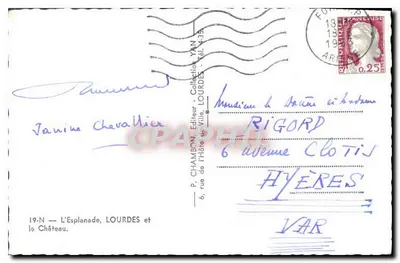 0,25
Janine Chevallier
19-N — L'Esplanade, LOURDES et
le Château.
P. CHAMBON, Editeur - Collection YAN
6, rue de l'Hôtel de Ville, LOURDES - Tél. 4-35
Monsieur le Docteur et Madame
RIGORD
6 avenue CLOTIS
HYÈRES
VAR